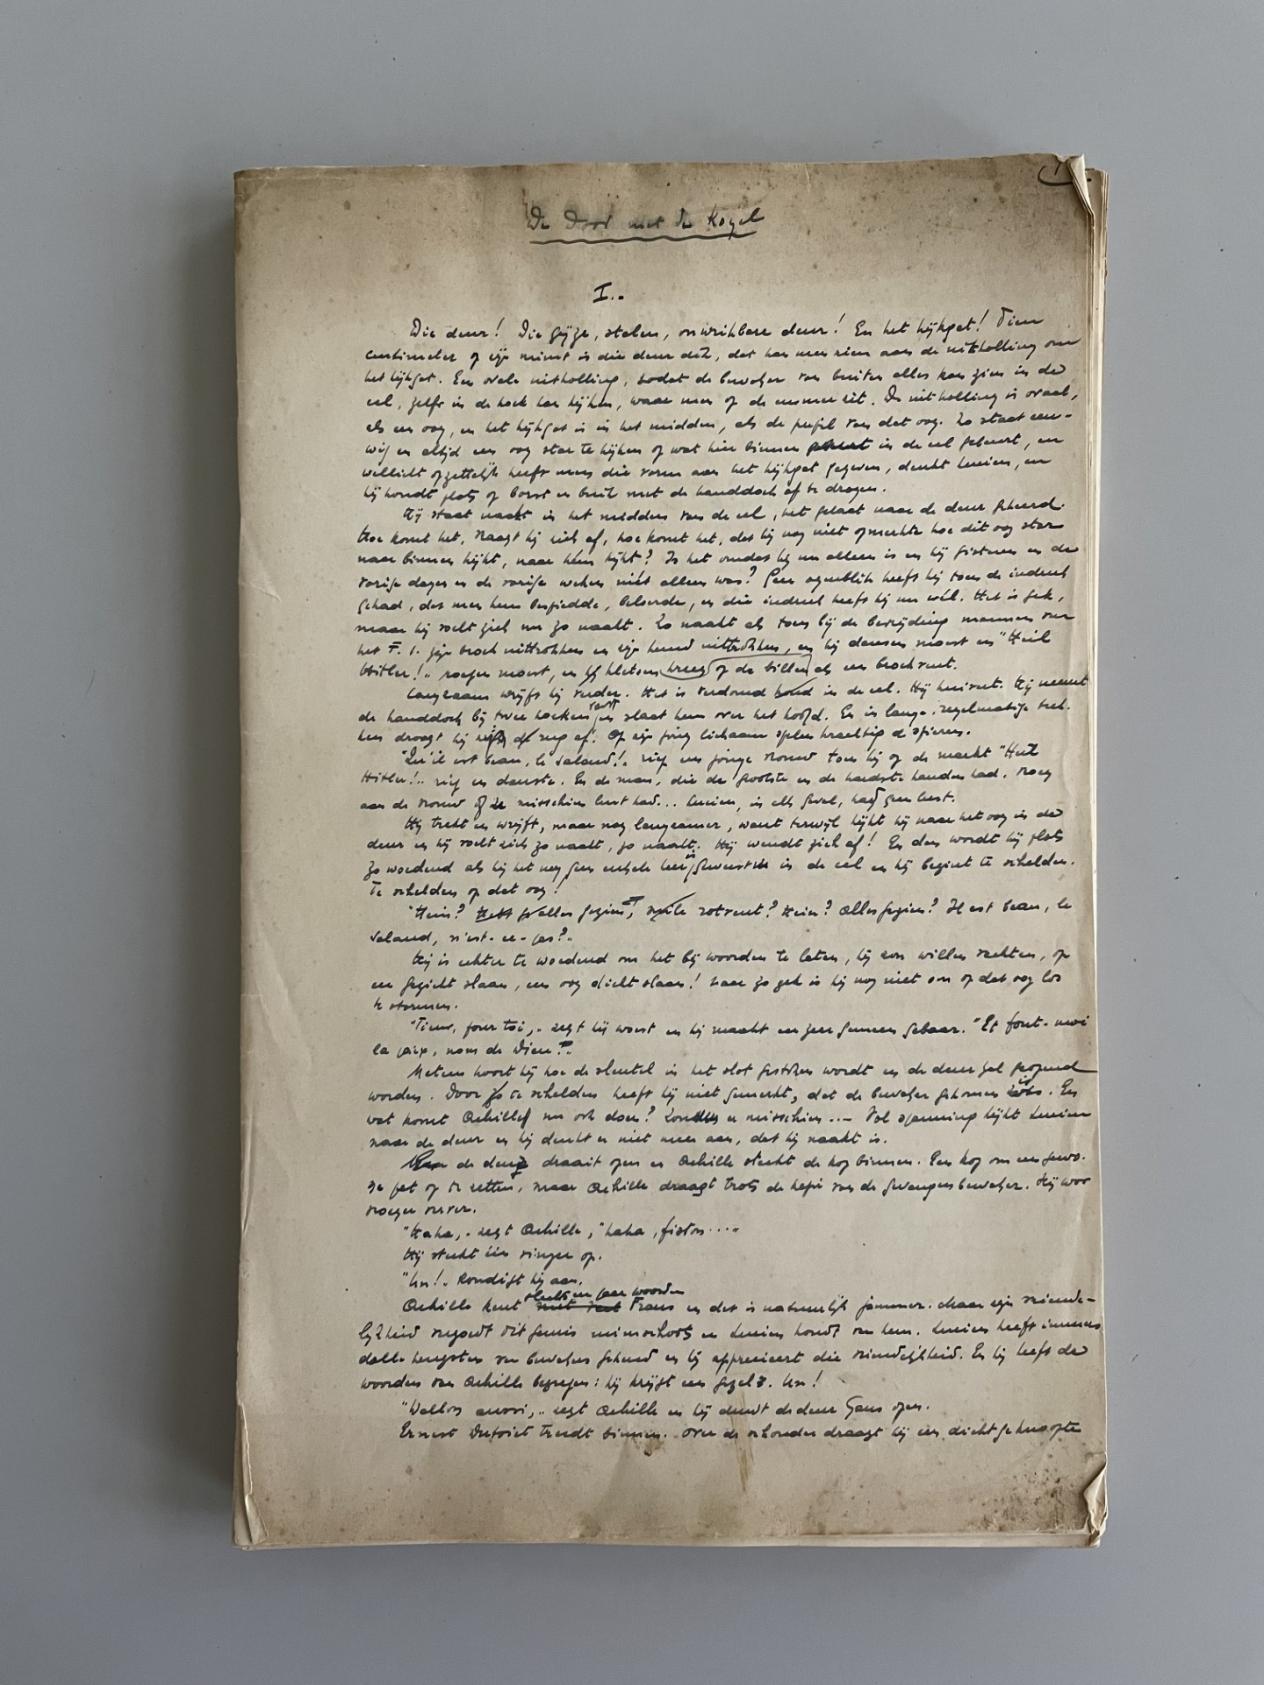 De Dood met de Kogel
I..
Die deur! Die grijze, stalen, onwrikbare deur! En het kijkgat! Tien
centimeter of zijn minst is die deur dik, dat kan men zien aan de uitholling om
het kijkgat. Een ovale uitholling, zodat de bewaker van buiten alles kan zien in de
cel, zelfs in de hoek kan kijken, waar men op de emmer zit. De uitholling is ovaal,
als een oog, en het kijkgat is in het midden, als de pupil van dat oog. Zo staat eeu-
wig en altijd een oog star te kijken of wat hier binnen in de cel gebeurt, en
wellicht opzettelijk heeft men die vorm aan het kijkgat gegeven, denkt Lucien, en
hij houdt plots op borst en buik met de handdoek af te drogen.
Hij staat naakt in het midden van de cel, het gelaat naar de deur gekeerd.
Hoe komt het, vraagt hij zich af, hoe komt het, dat hij nog niet opmerkte hoe dit oog star
naar binnen kijkt, naar hem kijkt? Is het omdat hij nu alleen is en hij gisteren en de
vorige dagen en de vorige weken niet alleen was? Geen ogenblik heeft hij toen de indruk
gehad, dat men hem bespiedde, beloerde, en die indruk heeft hij nu wél. Het is gek,
maar hij voelt zich nu zo naakt. Zo naakt als toen bij de bevrijding mannen van
het F. I. zijn broek uittrokken en zijn hemd uittrokken, en hij dansen moest en "Heil
Hitler!" roepen moest, en kletsen kreeg op de billen als een brochvent.
Langzaam wrijft hij verder. Het is verdomd koud in de cel. Hij huivert. Hij neemt
de handdoek bij twee hoeken vast en slaat hem over het hoofd. En in lange, regelmatige trek-
ken droogt hij zijn rug af. Op zijn jong lichaam spelen krachtig de spieren.
"Qu'il est beau, le salaud!" riep een jonge vrouw toen hij op de markt "Heil
Hitler!" riep en danste. En de man, die de grootste en de hardste handen had, vroeg
aan de vrouw of ze misschien lust had... Lucien, in elk geval, had geen lust.
Hij trekt en wrijft, maar nog langzamer, want terwijl kijkt hij naar het oog in de
deur en hij voelt zich zo naakt, zo naakt. Hij wendt zich af! En dan wordt hij plots
zo woedend als hij het nog geen enkele keer is geweest in de cel en hij begint te schelden.
Te schelden op dat oog!
"Hein? alles gezien, vuile rotvent? Hein? Alles gezien? Il est beau, le
salaud, n'est-ce-pas?"
Hij is echter te woedend om het bij woorden te laten, hij zou willen vechten, op
een gezicht slaan, een oog dicht slaan! Maar zo gek is hij nog niet om op dat oog los
te stormen.
"Tiens, pour toi," zegt hij woest en hij maakt een zeer gemeen gebaar. "Et fout-moi
la paix, nom de Dieu!"
Meteen hoort hij hoe de sleutel in het slot gestoken wordt en de deur zal geopend
worden. Door zo te schelden heeft hij niet gemerkt, dat de bewaker gekomen is. En
wat komt Achille nu ook doen? Zouden er misschien ... Vol spanning kijkt Lucien
naar de deur en hij denkt er niet meer aan, dat hij naakt is.
de deur draait open en Achille steekt de kop binnen. Een kop om een gewo-
ne pet op te zetten, maar Achille draagt trots de kepi van de gevangenbewaker. Hij was
vroeger
"Haha," zegt Achille, "haha, fiston...."
Hij steekt één vinger op.
"Un!" kondigt hij aan.
Achille kent slechts een paar woorden Frans en dat is natuurlijk jammer. Maar zijn vriende-
lijkheid vergoedt dit gemis ruimschoots en Lucien houdt van hem. Lucien heeft immers
dolle hengsten van bewakers gekend en hij apprecieert die vriendelijkheid. En hij heeft de
woorden van Achille begrepen: hij krijgt een gezel. Un!
"Wellos aussi," zegt Achille en hij duwt de deur gans open.
Ernest Dufoiet treedt binnen. Over de schouder draagt hij een dichtgeknoopte